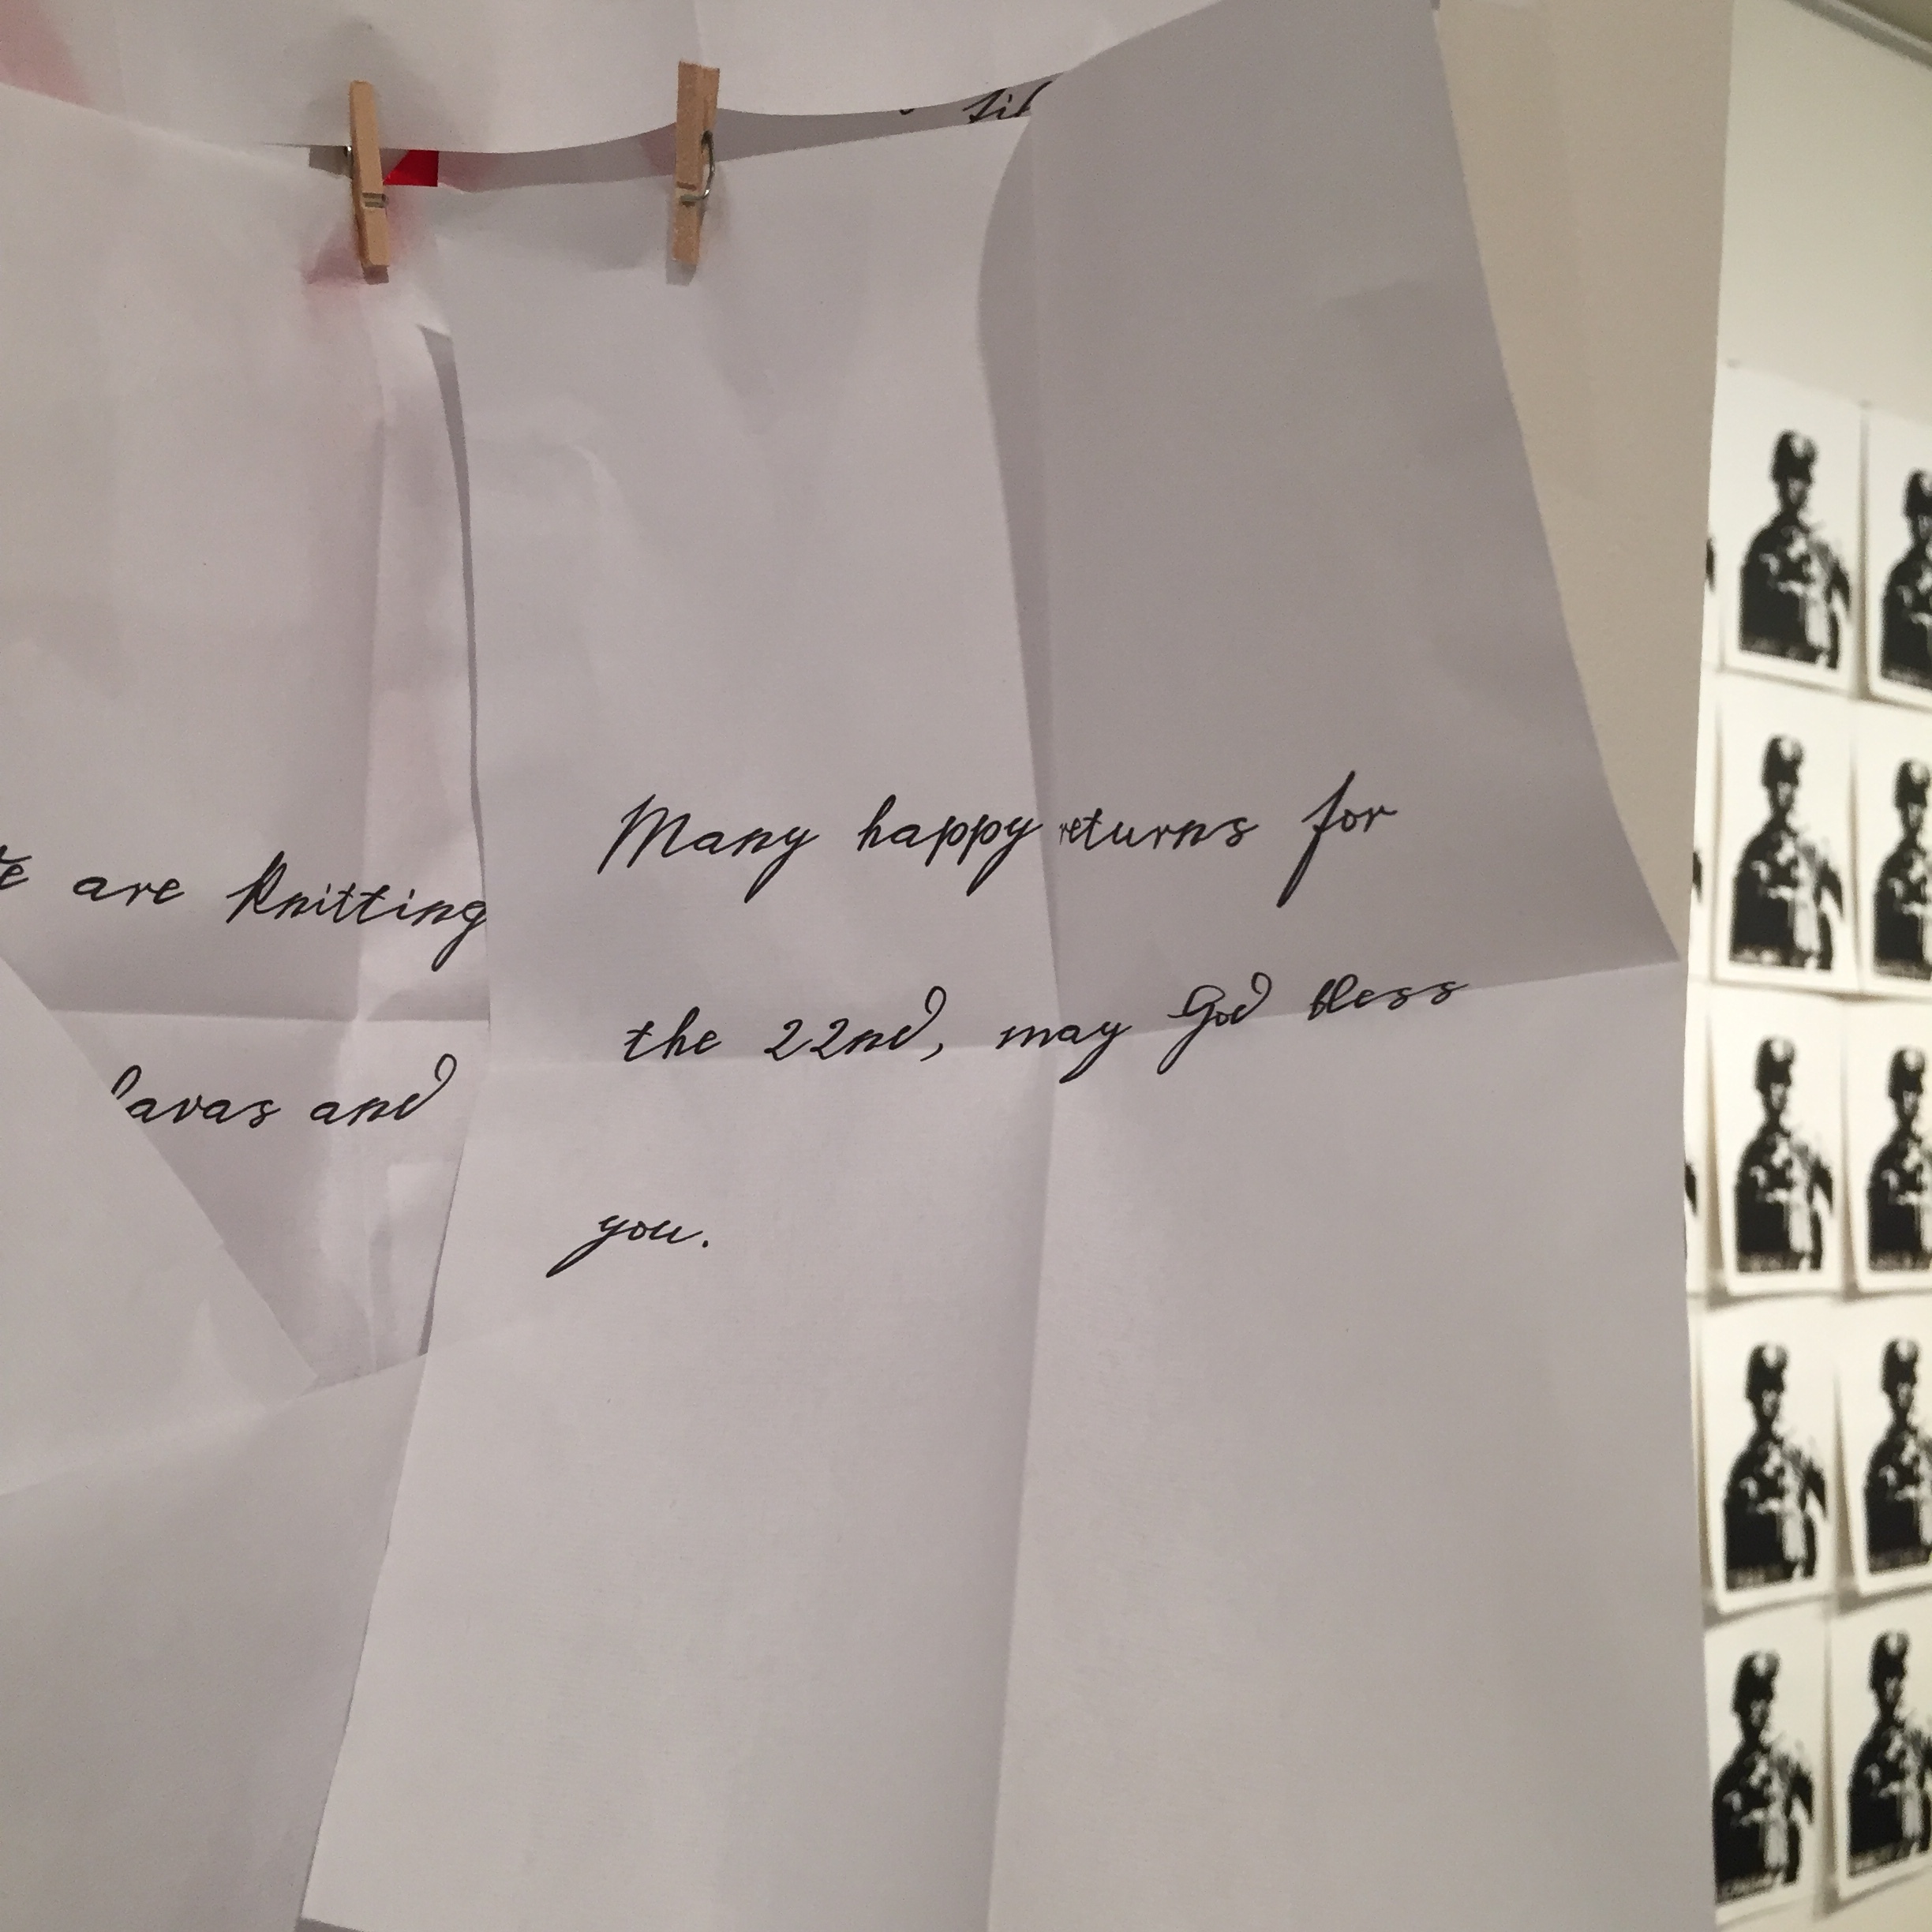 are knitting
and
Many happy returns for
the 22nd, may God bless
you.